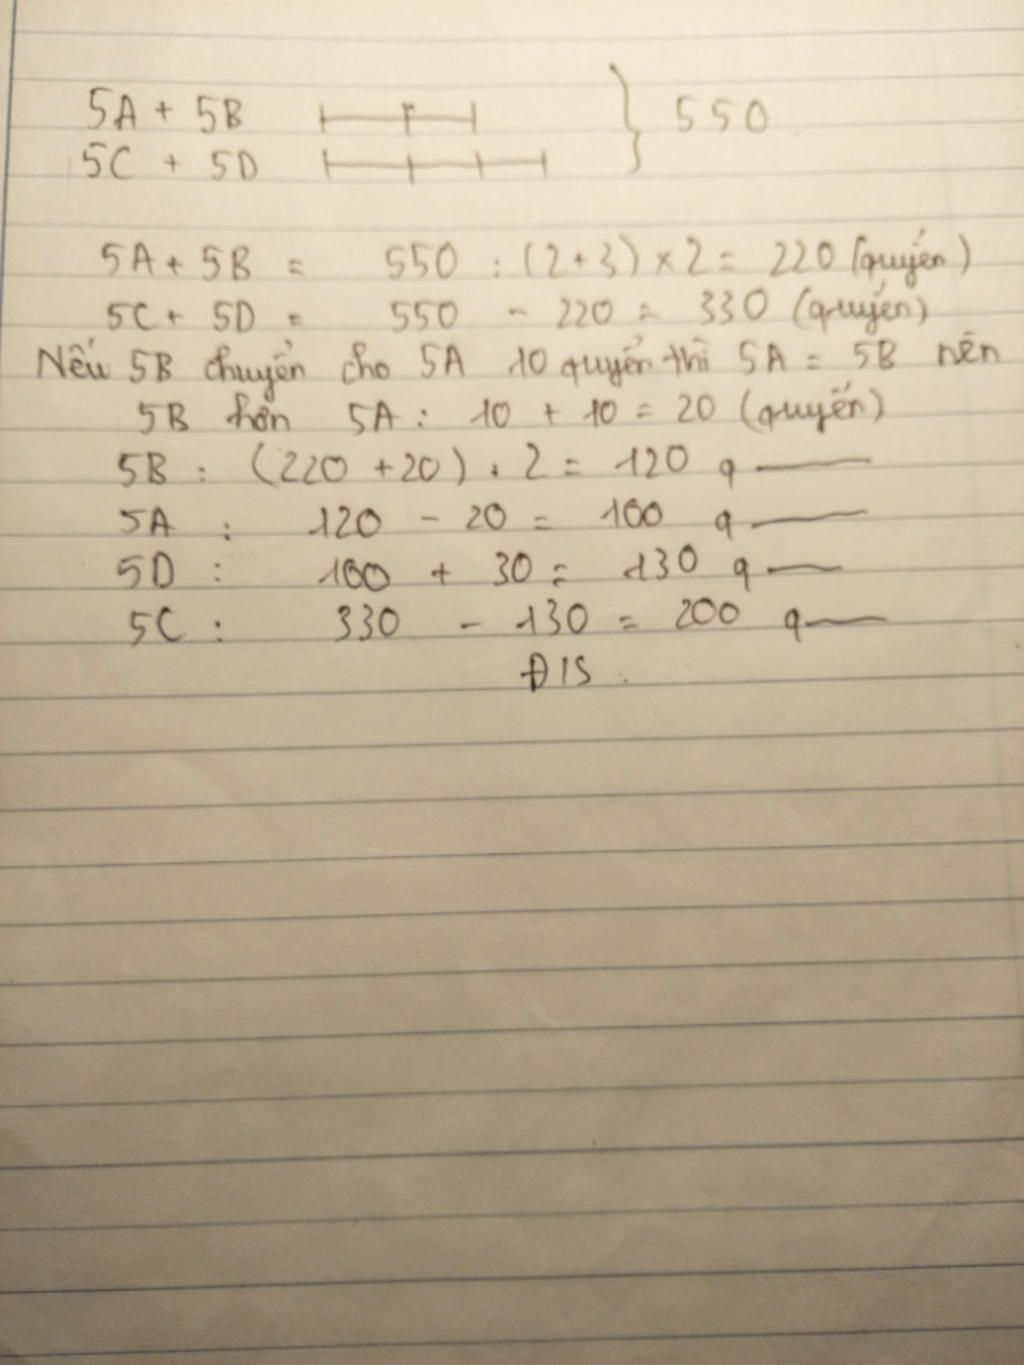 5A + 5B } 550
5C + 5D
5A + 5B = 550 : (2+3) × 2 = 220 (quyển)
5C + 5D = 550 - 220 = 330 (quyển)
Nếu 5B chuyển cho 5A 10 quyển thì 5A = 5B nên
5B hơn 5A : 10 + 10 = 20 (quyển)
5B : (220 + 20) : 2 = 120 q
5A : 120 - 20 = 100 q
5D : 100 + 30 = 130 q
5C : 330 - 130 = 200 q
Đ/S.